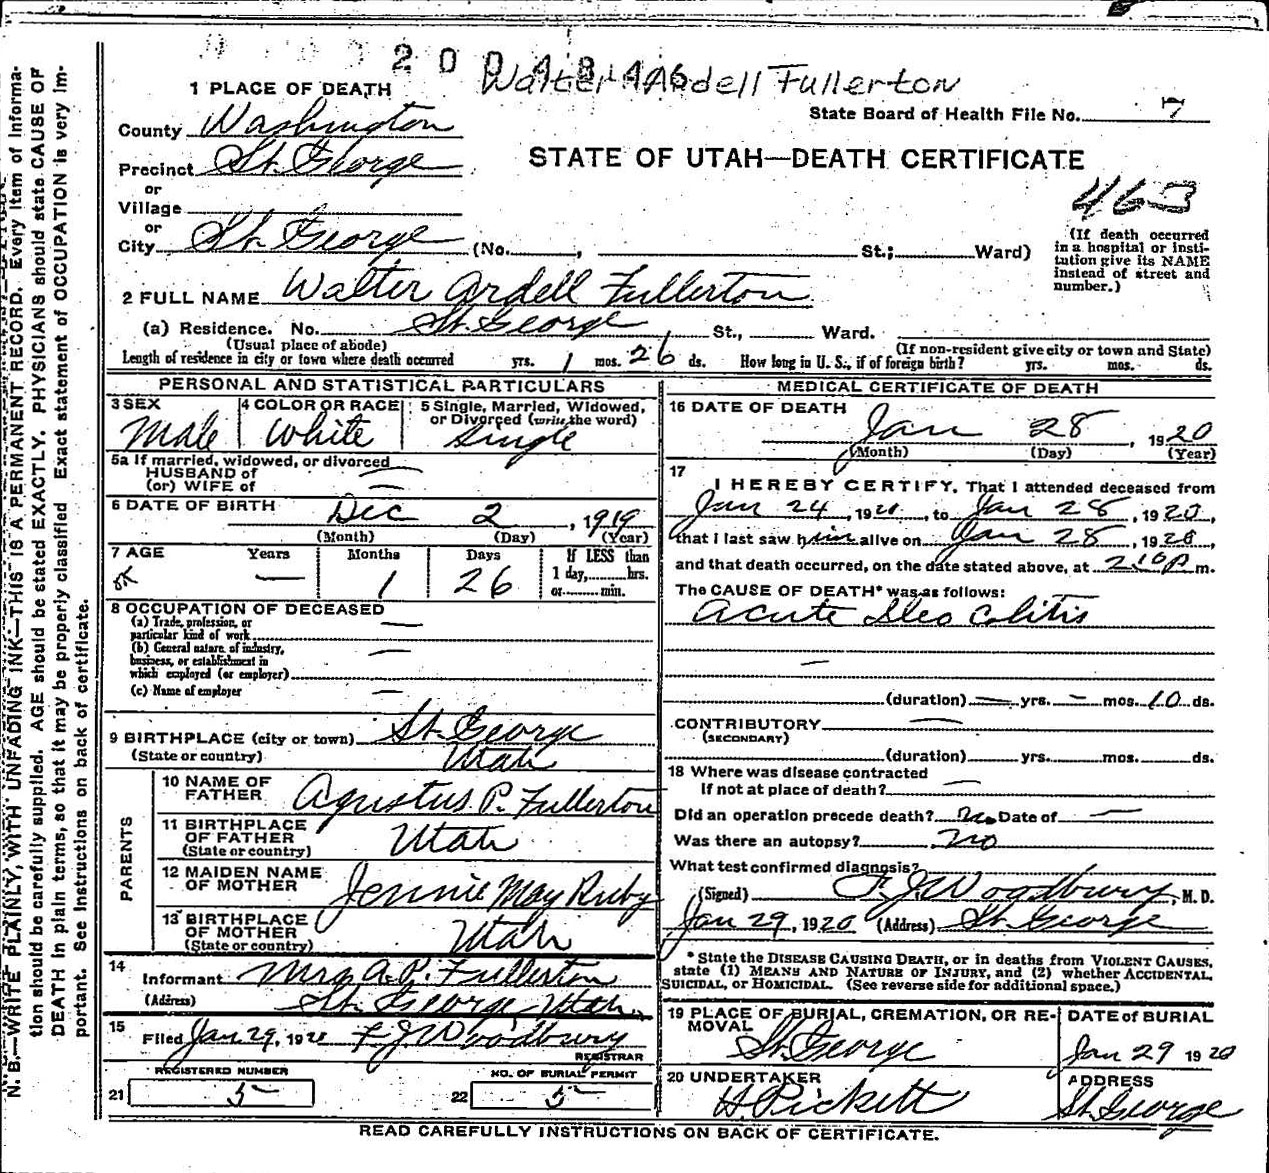 2 0 0 4 8 4 4 6
Walter Ardell Fullerton
1 PLACE OF DEATH
State Board of Health File No. 7
County Washington
STATE OF UTAH—DEATH CERTIFICATE
Precinct St. George
or
Village
463
or
City St. George (No. , St.; Ward)
(If death occurred in a hospital or insti-
tution give its NAME
instead of street and
number.)
2 FULL NAME Walter Ardell Fullerton
(a) Residence. No. St. George St., Ward.
(Usual place of abode) (If non-resident give city or town and State)
Length of residence in city or town where death occurred yrs. 1 mos. 26 ds. How long in U. S., if of foreign birth? yrs. mos. ds.
PERSONAL AND STATISTICAL PARTICULARS
3 SEX Male
4 COLOR OR RACE White
5 Single, Married, Widowed,
or Divorced (write the word)
Single
5a If married, widowed, or divorced —
HUSBAND of
(or) WIFE of —
6 DATE OF BIRTH Dec 2, 1919
(Month) (Day) (Year)
7 AGE Years Months Days If LESS than
1 day, hrs.
or min.
OK — 1 26
8 OCCUPATION OF DECEASED
(a) Trade, profession, or
particular kind of work —
(b) General nature of industry,
business, or establishment in
which employed (or employer) —
(c) Name of employer —
9 BIRTHPLACE (city or town) St. George
(State or country) Utah
PARENTS
10 NAME OF
FATHER Agustus P. Fullerton
11 BIRTHPLACE
OF FATHER
(State or country) Utah
12 MAIDEN NAME
OF MOTHER Jennie May Ruby
13 BIRTHPLACE
OF MOTHER
(State or country) Utah
14
Informant Mrs A. P. Fullerton
(Address) St. George Utah.
15
Filed Jan 29, 1920 F. J. Woodbury
REGISTRAR
REGISTERED NUMBER NO. OF BURIAL PERMIT
21 5 22 5
MEDICAL CERTIFICATE OF DEATH
16 DATE OF DEATH
Jan 28, 1920
(Month) (Day) (Year)
17
I HEREBY CERTIFY, That I attended deceased from
Jan 24, 1920, to Jan 28, 1920,
that I last saw him alive on Jan 28, 1920,
and that death occurred, on the date stated above, at 2 10 P m.
The CAUSE OF DEATH* was as follows:
Acute Ileo Colitis
—
(duration) — yrs. — mos. 10 ds.
CONTRIBUTORY —
(SECONDARY)
(duration) yrs. mos. ds.
18 Where was disease contracted
If not at place of death? —
Did an operation precede death? No Date of —
Was there an autopsy? No
What test confirmed diagnosis?
(Signed) F. J. Woodbury, M. D.
Jan 29, 1920 (Address) St. George
* State the DISEASE CAUSING DEATH, or in deaths from VIOLENT CAUSES,
state (1) MEANS AND NATURE OF INJURY, and (2) whether ACCIDENTAL,
SUICIDAL, or HOMICIDAL. (See reverse side for additional space.)
19 PLACE OF BURIAL, CREMATION, OR RE-
MOVAL
St. George
DATE of BURIAL
Jan 29 1920
20 UNDERTAKER
H. Pickett
ADDRESS
St George
READ CAREFULLY INSTRUCTIONS ON BACK OF CERTIFICATE.
N. B.—WRITE PLAINLY, WITH UNFADING INK—THIS IS A PERMANENT RECORD. Every item of informa-
tion should be carefully supplied. AGE should be stated EXACTLY. PHYSICIANS should state CAUSE OF
DEATH in plain terms, so that it may be properly classified Exact statement of OCCUPATION is very im-
portant. See instructions on back of certificate.